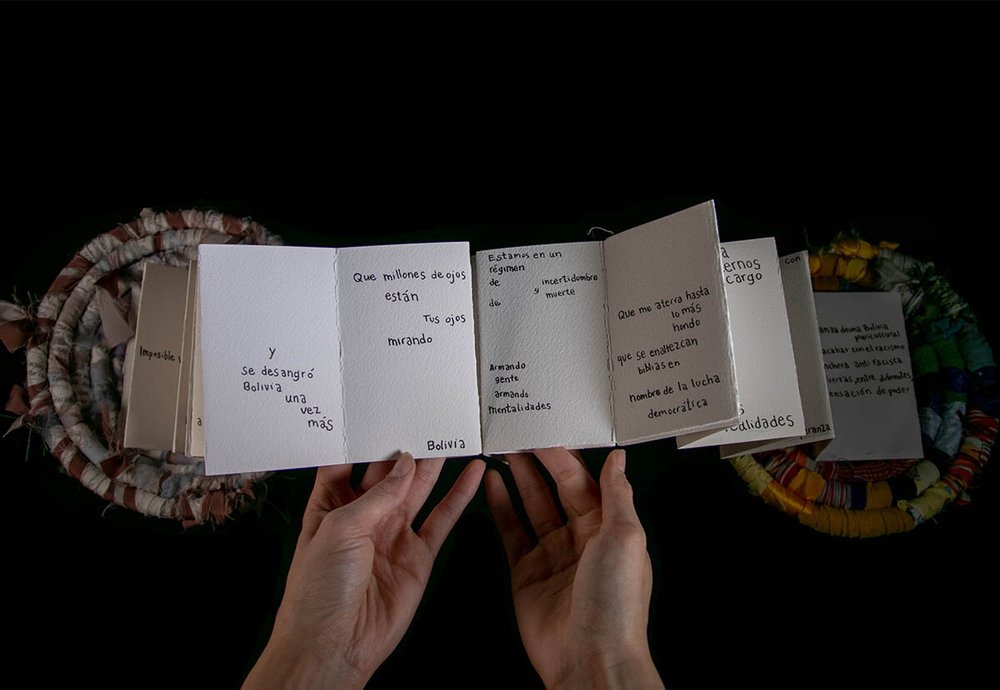 Imposible
y
se desangró
Bolivia
una
vez
más
Que millones de ojos
están
Tus ojos
mirando
Bolivia
Estamos en un
régimen
de incertidumbre
y
de muerte
Armando
gente
armando
mentalidades
Que me aterra hasta
lo más
hondo
que se enaltezcan
biblias en
nombre de la lucha
democrática
a
ernos
cargo
s
realidades
con
ranza
deuna Bolivia
pluricultural
acabar con el racismo
nchera anti racista
uertas, entre diferentes
ensación de poder